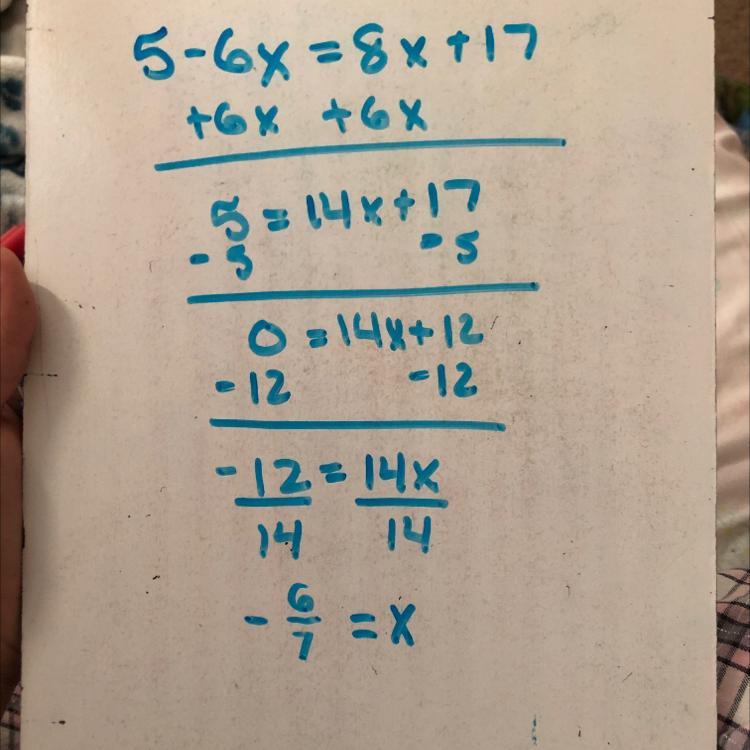 5-6x=8x+17
+6x +6x
5=14x+17
-5 -5
0=14x+12
-12 -12
-12=14x
14 14
-6/7=x